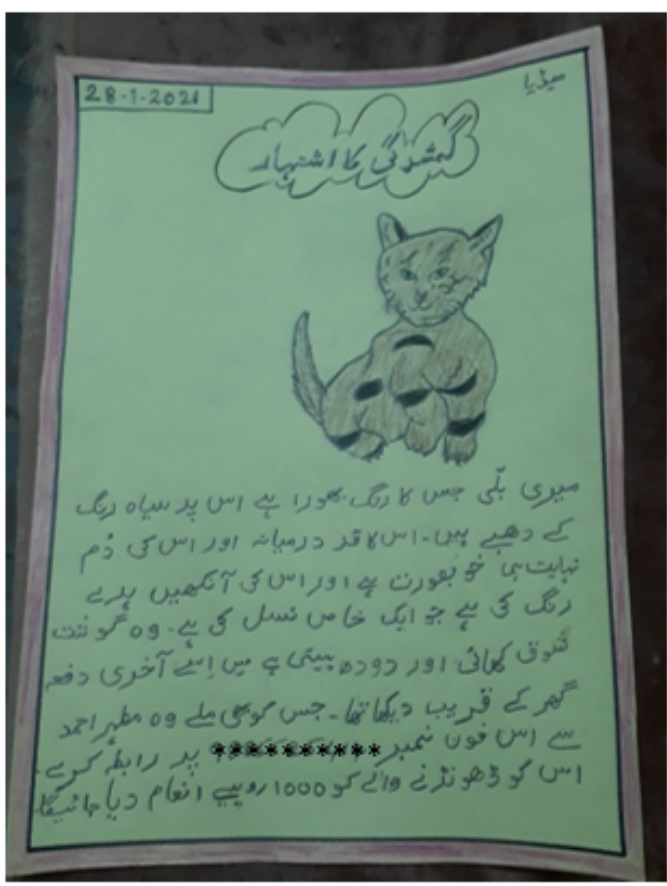 میڈیا
28-1-2021
گمشدگی کا اشتہار
میری بلّی جس کا رنگ بھورا ہے اس پر سیاہ رنگ
کے دھبے ہیں۔ اس کا قد درمیانہ اور اس کی دُم
نہایت ہی خوبصورت ہے اور اس کی آنکھیں ہرے
رنگ کی ہے جو ایک خاص نسل کی ہے۔ وہ گوشت
شوق کھاتی اور دودھ پیتی ہے میں اِسے آخری دفعہ
گھر کے قریب دیکھا تھا۔ جس کو بھی ملے وہ مظہر احمد
سے اس فون نمبر ********** پر رابطہ کرے۔
اس کو ڈھونڈنے والے کو 1000 روپیے انعام دیا جائیگا۔